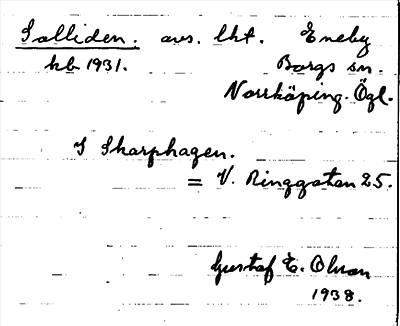 Solliden. avs. lht. Eneby
kb 1931. Borgs sn.
Norrköping. Ögl.
I Skarphagen.
= V. Ringgatan 25.
Gustaf E. Olson
1938.